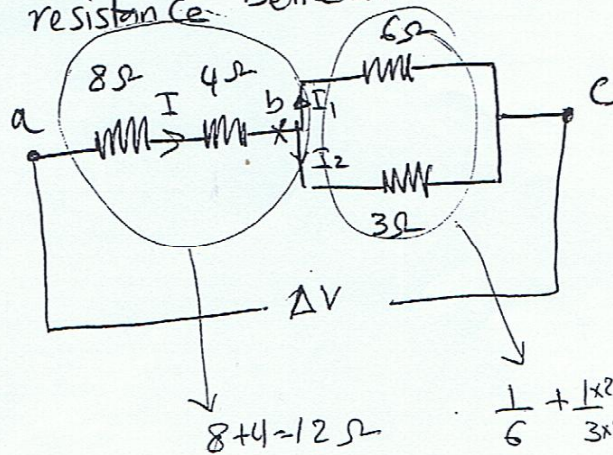 resistance
6Ω
8Ω 4Ω
I b I₁ c
a
I₂
3Ω
ΔV
8+4=12 Ω
1/6 + 1×2/3×